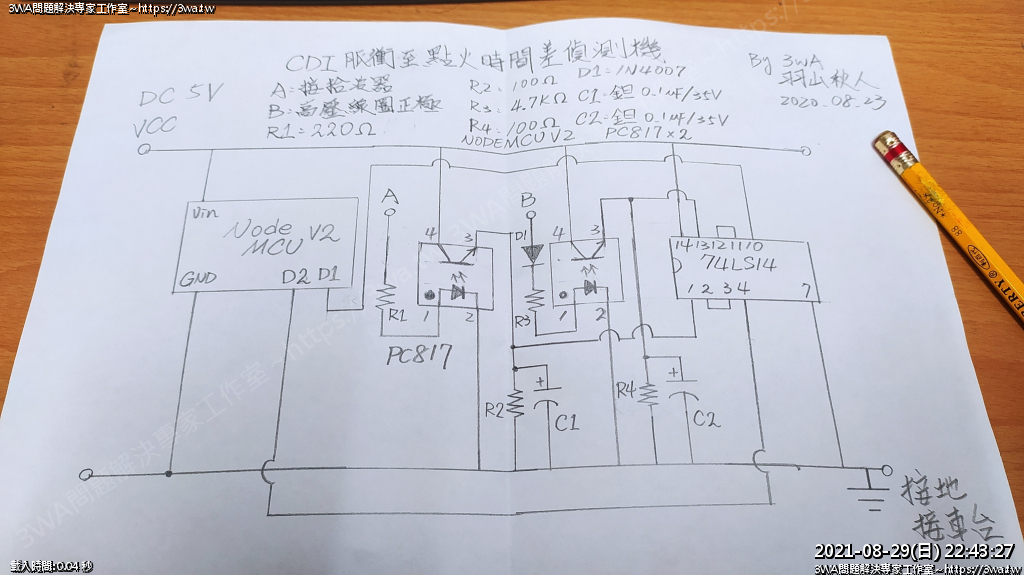 3WA問題解決專家工作室~https://3wa.tw
CDI 脈衝至點火時間差偵測機
By 3WA
羽山秋人
2020.08.23
DC 5V
VCC
A:接拾波器
B:高壓線圈正極
R1=220Ω
R2:100Ω
R3:4.7KΩ
R4:100Ω
NODEMCU V2
D1:1N4007
C1:鉭 0.1uF/35V
C2:鉭 0.1uF/35V
PC817×2
Vin
Node
MCU V2
GND
D2 D1
A
R1
4
3
1
2
PC817
B
D1
R3
4
3
1
2
14 13 12 11 10
74LS14
1 2 3 4
7
R2
+
C1
R4
+
C2
接地
接車台
3WA問題解決專家工作室~https://3wa.tw
載入時間:0.04 秒
2021-08-29(日) 22:43:27
3WA問題解決專家工作室~https://3wa.tw